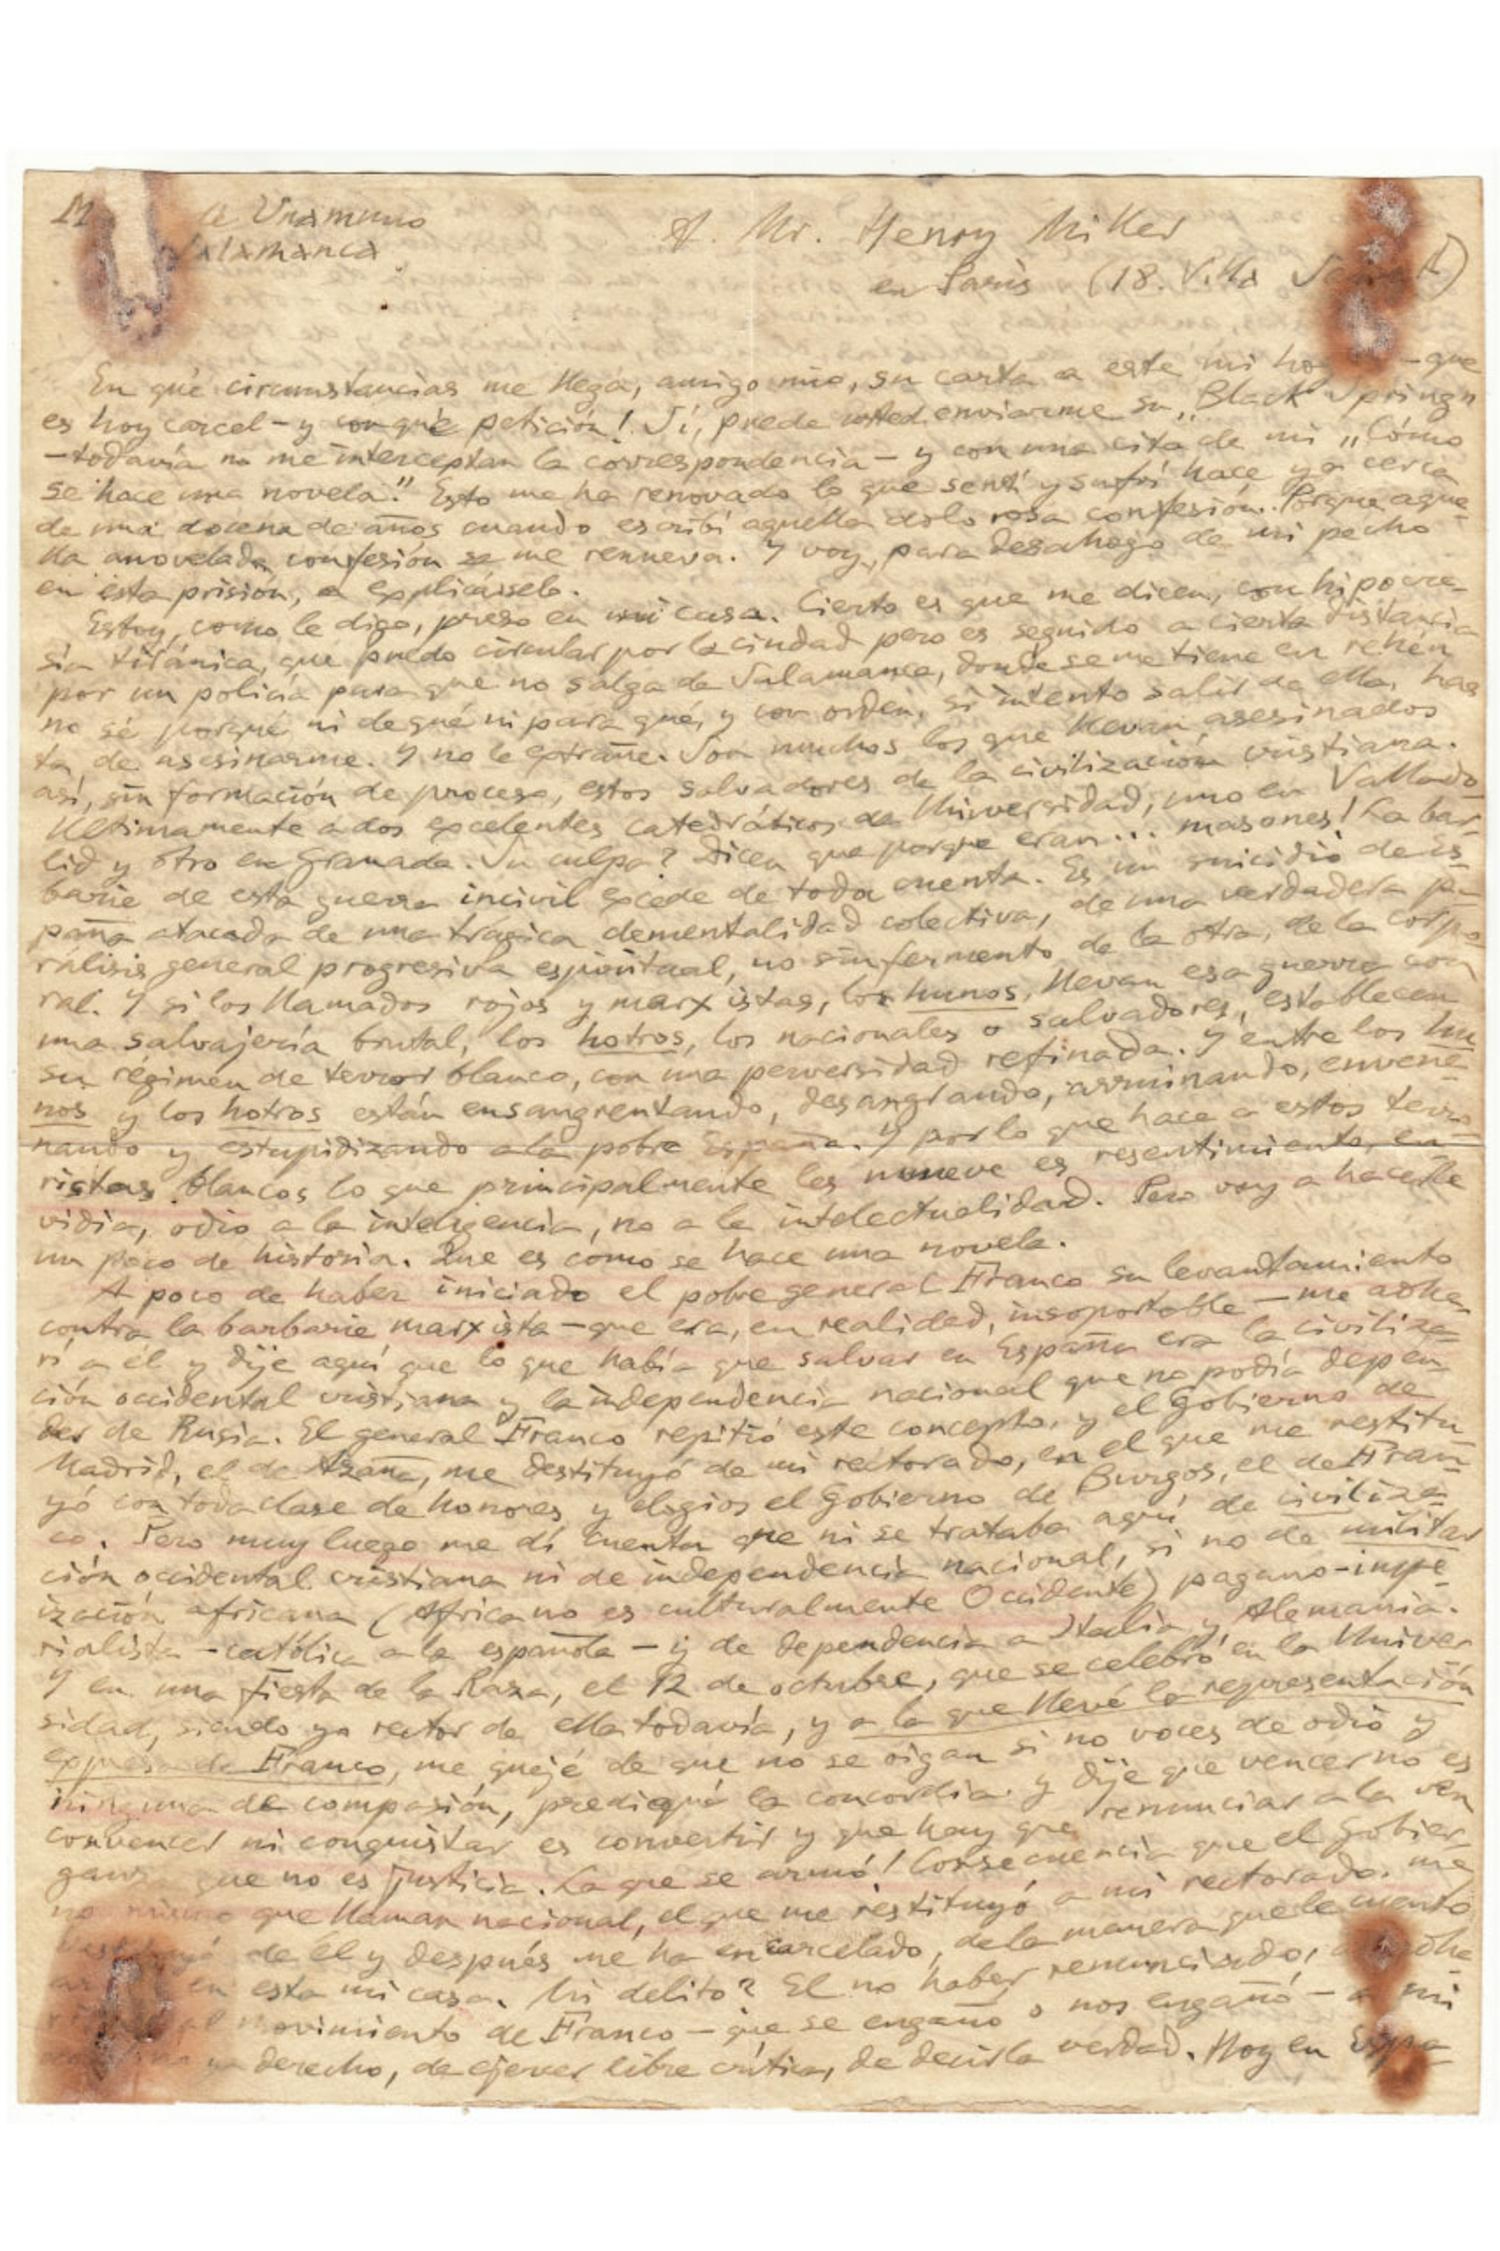 M de Unamuno
Salamanca.
A. Mr. Henry Miller
en París (18. Villa
En qué circumstancias me llega, amigo mío, su carta a este mi ho – que
es hoy carcel – y con qué petición! Sí, puede usted enviarme su „Black Spring”
– todavía no me interceptan la correspondencia – y con una cita de mi „Cómo
se hace una novela.” Esto me ha renovado lo que sentí y sufrí hace ya cerca
de una docena de años cuando escribí aquella dolorosa confesión. Porque aque-
lla anovelada confesión se me renueva. Y voy, para desahogo de mi pecho
en esta prisión, a explicárselo.
Estoy, como le digo, preso en mi casa. Cierto es que me dicen, con hipocre-
sía tiránica, que puedo circular por la ciudad pero es seguido a cierta distancia
por un policía para que no salga de Salamanca, donde se me tiene en rehén
no sé porqué ni de qué ni para qué, y con orden, si intento salir de ella, has
ta, de asesinarme. Y no le extrañe. Son muchos los que llevan, asesinados
así, sin formación de proceso, estos salvadores de la civilización cristiana.
Ultimamente a dos excelentes catedráticos de Universidad, uno en Vallado
lid y otro en Granada. Su culpa? Dicen que porque eran... masones! La bar-
barie de esta guerra incivil excede de toda cuenta. Es un suicidio de Es-
paña atacada de una tragica dementalidad colectiva, de una verdadera pa-
rálisis general progresiva espiritual, no sin fermento de la otra, de la corpo
ral. Y si los llamados rojos y marxistas, los hunos, llevan esa guerra con
una salvajería brutal, los hotros, los nacionales o salvadores, establecen
su régimen de terror blanco, con una perversidad refinada. Y entre los hu
nos y los hotros están ensangrentando, desangrando, arruinando, envene-
nando y estupidizando a la pobre España. Y por lo que hace a estos terro-
ristas blancos lo que principalmente les mueve es resentimiento, en
vidia, odio a la inteligencia, no a la intelectualidad. Pero voy a hacerle
un poco de historia. Que es como se hace una novela.
A poco de haber iniciado el pobre general Franco su levantamiento
contra la barbarie marxista – que era, en realidad, insoportable – me adhe
rí a él y dije aquí que lo que había que salvar en España era la civiliza-
ción occidental cristiana y la independencia nacional que no podía depen
der de Rusia. El general Franco repitió este concepto, y el Gobierno de
Madrid, el de Azaña, me destituyó de mi rectorado, en el que me restitu
yó con toda clase de honores y elogios el Gobierno de Burgos, el de Fran-
co. Pero muy luego me dí cuenta que ni se trataba aquí de civiliza-
ción occidental cristiana ni de independencia nacional, si no de militar
ización africana (Africa no es culturalmente Occidente) pagano-impe
rialista – católica a la española – y de dependencia a Italia y Alemania.
Y en una fiesta de la Raza, el 12 de octubre, que se celebró en la Univer
sidad, siendo yo rector de ella todavía, y a la que llevé la representación
expresa de Franco, me quejé de que no se oigan si no voces de odio y
ninguna de compasión, prediqué la concordia y dije que vencer no es
convencer ni conquistar es convertir y que hay que renunciar a la ven
ganz que no es justicia. La que se armó! Consecuencia que el Gobier-
no mismo que llaman nacional, el que me restituyó a mi rectorado, me
destituyó de él y después me ha encarcelado, de la manera que le cuento
en esta mi casa. Mi delito? El no haber renunciado, adhe
al movimiento de Franco – que se engañó o nos engañó – a mi
derecho, de ejercer libre crítica, de decir la verdad. Hoy en Espa